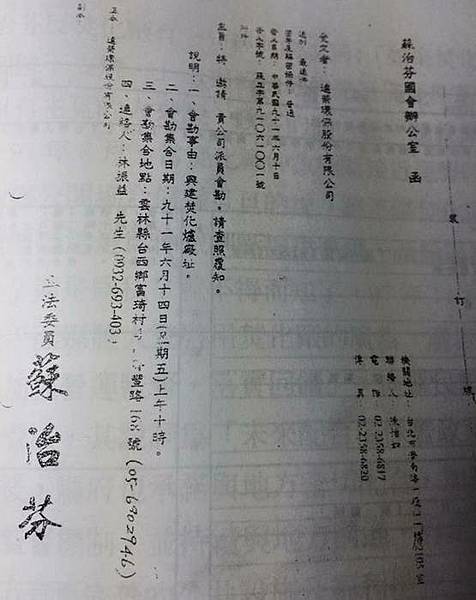 蘇治芬國會辦公室 函
機關地址：台北市
聯絡人：
電話：02-2358-6817
傳真：02-2358-6820
受文者：遠榮環保股份有限公司
速別：最速件
密等及解密條件：普通
發文日期：中華民國九十一年六月十日
主旨：特邀請 貴公司派員會勘，請查照覆知。
說明：一、會勘事由：興建焚化爐廠址。
二、會勘集合日期：九十一年六月十四日(星期五)上午十時。
三、會勘集合地點：雲林縣台西鄉富琦村 豐路168號 (05-6902946)
四、連絡人：林振益 先生 (0932-693-403)
正本：遠榮環保股份有限公司
副本：
立法委員 蘇治芬
裝 訂 線